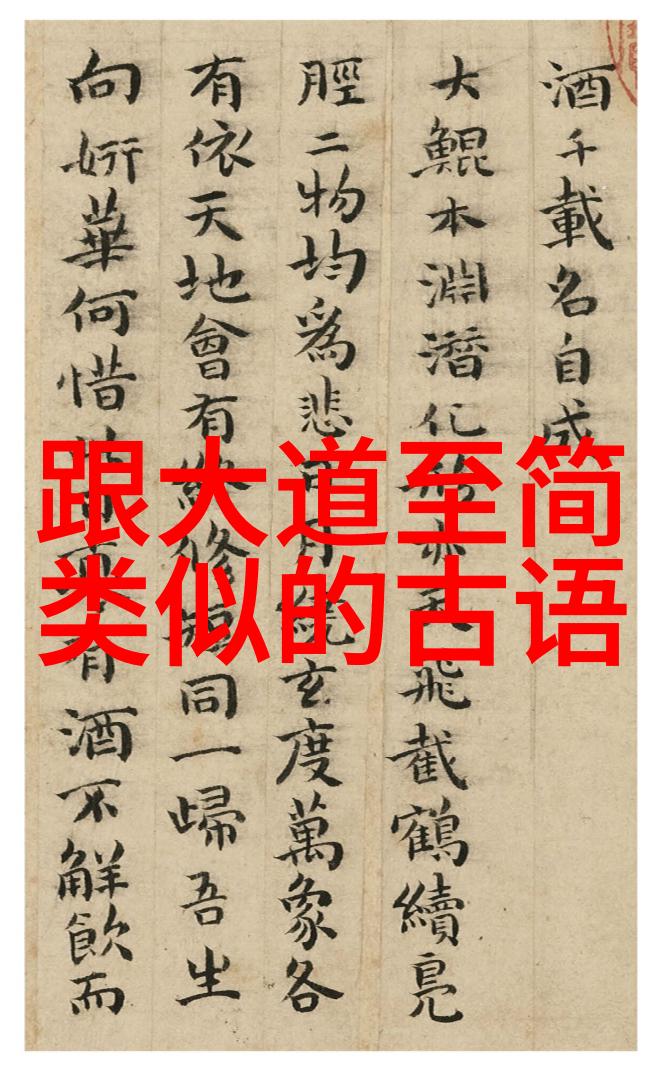 跟大道至简
类似的古语
酒千載名自成
大鯤本淵潛化天飛截鶴續
脛二物均爲悲日月繞玄度萬象各
有依天地會有終修短同一歸吾生
向妍華何惜有酒不解飲而